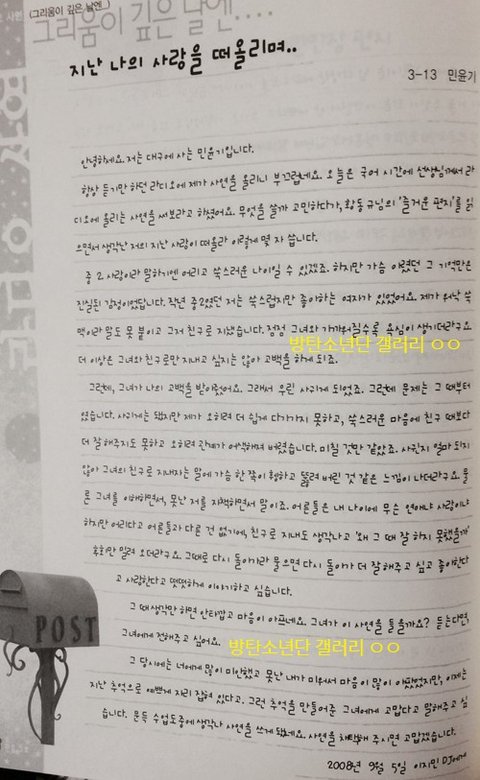 (그리움이 깊은 날엔...)
그리움이 깊은 날엔....
지난 나의 사랑을 떠올리며..
3-13 민윤기
안녕하세요. 저는 대구에 사는 민윤기입니다.
항상 듣기만 하던 라디오에 제가 사연을 올리니 부끄럽네요. 오늘은 국어 시간에 선생님께서 라
디오에 올리는 사연을 써보라고 하셨어요. 무엇을 쓸까 고민하다가, 황동규님의 '즐거운 편지'를 읽
으면서 생각난 저의 지난 사랑이 떠올라 이렇게 몇 자 씁니다.
중 2 사랑이라 말하기엔 어리고 쑥스러운 나이일 수 있겠죠. 하지만 가슴 아렸던 그 기억만은
진실된 감정이었답니다. 작년 중2였던 저는 쑥스럽지만 좋아하는 여자가 있었어요. 제가 워낙 쑥
맥이라 말도 못 붙이고 그저 친구로 지냈습니다. 점점 그녀와 가까워질수록 욕심이 생기더라구요.
방탄소년단 갤러리 ㅇㅇ
더 이상은 그녀와 친구로만 지내고 싶지는 않아 고백을 하게 되죠.
그런데, 그녀가 나의 고백을 받아줬어요. 그래서 우린 사귀게 되었죠. 그런데 문제는 그 때부터
였습니다. 사귀게는 됐지만 제가 오히려 더 쉽게 다가가지 못하고, 쑥스러운 마음에 친구 때보다
더 잘해주지도 못하고 오히려 관계가 어색해져 버렸습니다. 미칠 것만 같았죠. 사귄지 얼마 되지
않아 그녀의 친구로 지내자는 말에 가슴 한 쪽이 휑하고 뚫려 버린 것 같은 느낌이 나더라구요. 물
론 그녀를 이해하면서, 못난 저를 자책하면서 말이죠. 어른들은 내 나이에 무슨 연애냐 사랑이냐
하지만 어리다고 어른들과 다를 건 없기에, 친구로 지내도 생각나고 '왜 그 때 잘 하지 못했을까'
후회만 밀려 오더라구요. 그때로 다시 돌아가라 물으면 다시 돌아가 더 잘해주고 싶고 좋아한다
고 사랑한다고 떳떳하게 이야기하고 싶습니다.
그 때 생각만 하면 안타깝고 마음이 아프네요. 그녀가 이 사연을 들을까요? 듣는다면,
그녀에게 전해주고 싶어요.
방탄소년단 갤러리 ㅇㅇ
그 당시에는 너에게 많이 미안했고 못난 내가 미워서 마음이 많이 아팠었지만, 이제는
지난 추억으로 예쁘게 자리 잡혀 있다고. 그런 추억을 만들어준 그녀에게 고맙다고 말해주고 싶
습니다. 문득 수업도중에 생각나 사연을 쓰게 됐네요. 사연을 채택해 주시면 고맙겠습니다.
2008년 9월 5일 이지민 DJ에게
POST